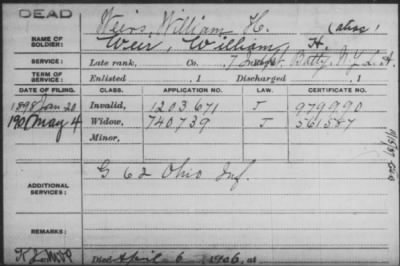 DEAD
Weirs, William H.
NAME OF SOLDIER: (alias)
Weir, William H.
SERVICE: Late rank, Co. , 7 Indpt. Batty, N.Y. L.A.
TERM OF SERVICE: Enlisted , 1 Discharged , 1
DATE OF FILING. CLASS. APPLICATION NO. LAW. CERTIFICATE NO.
1898 Jan 20 Invalid, 1203671 J 979990
190 May 4 Widow, 740739 J 561587
Minor,
ADDITIONAL SERVICES: G 62 Ohio Inf.
REMARKS:
Died April 6 1906, at